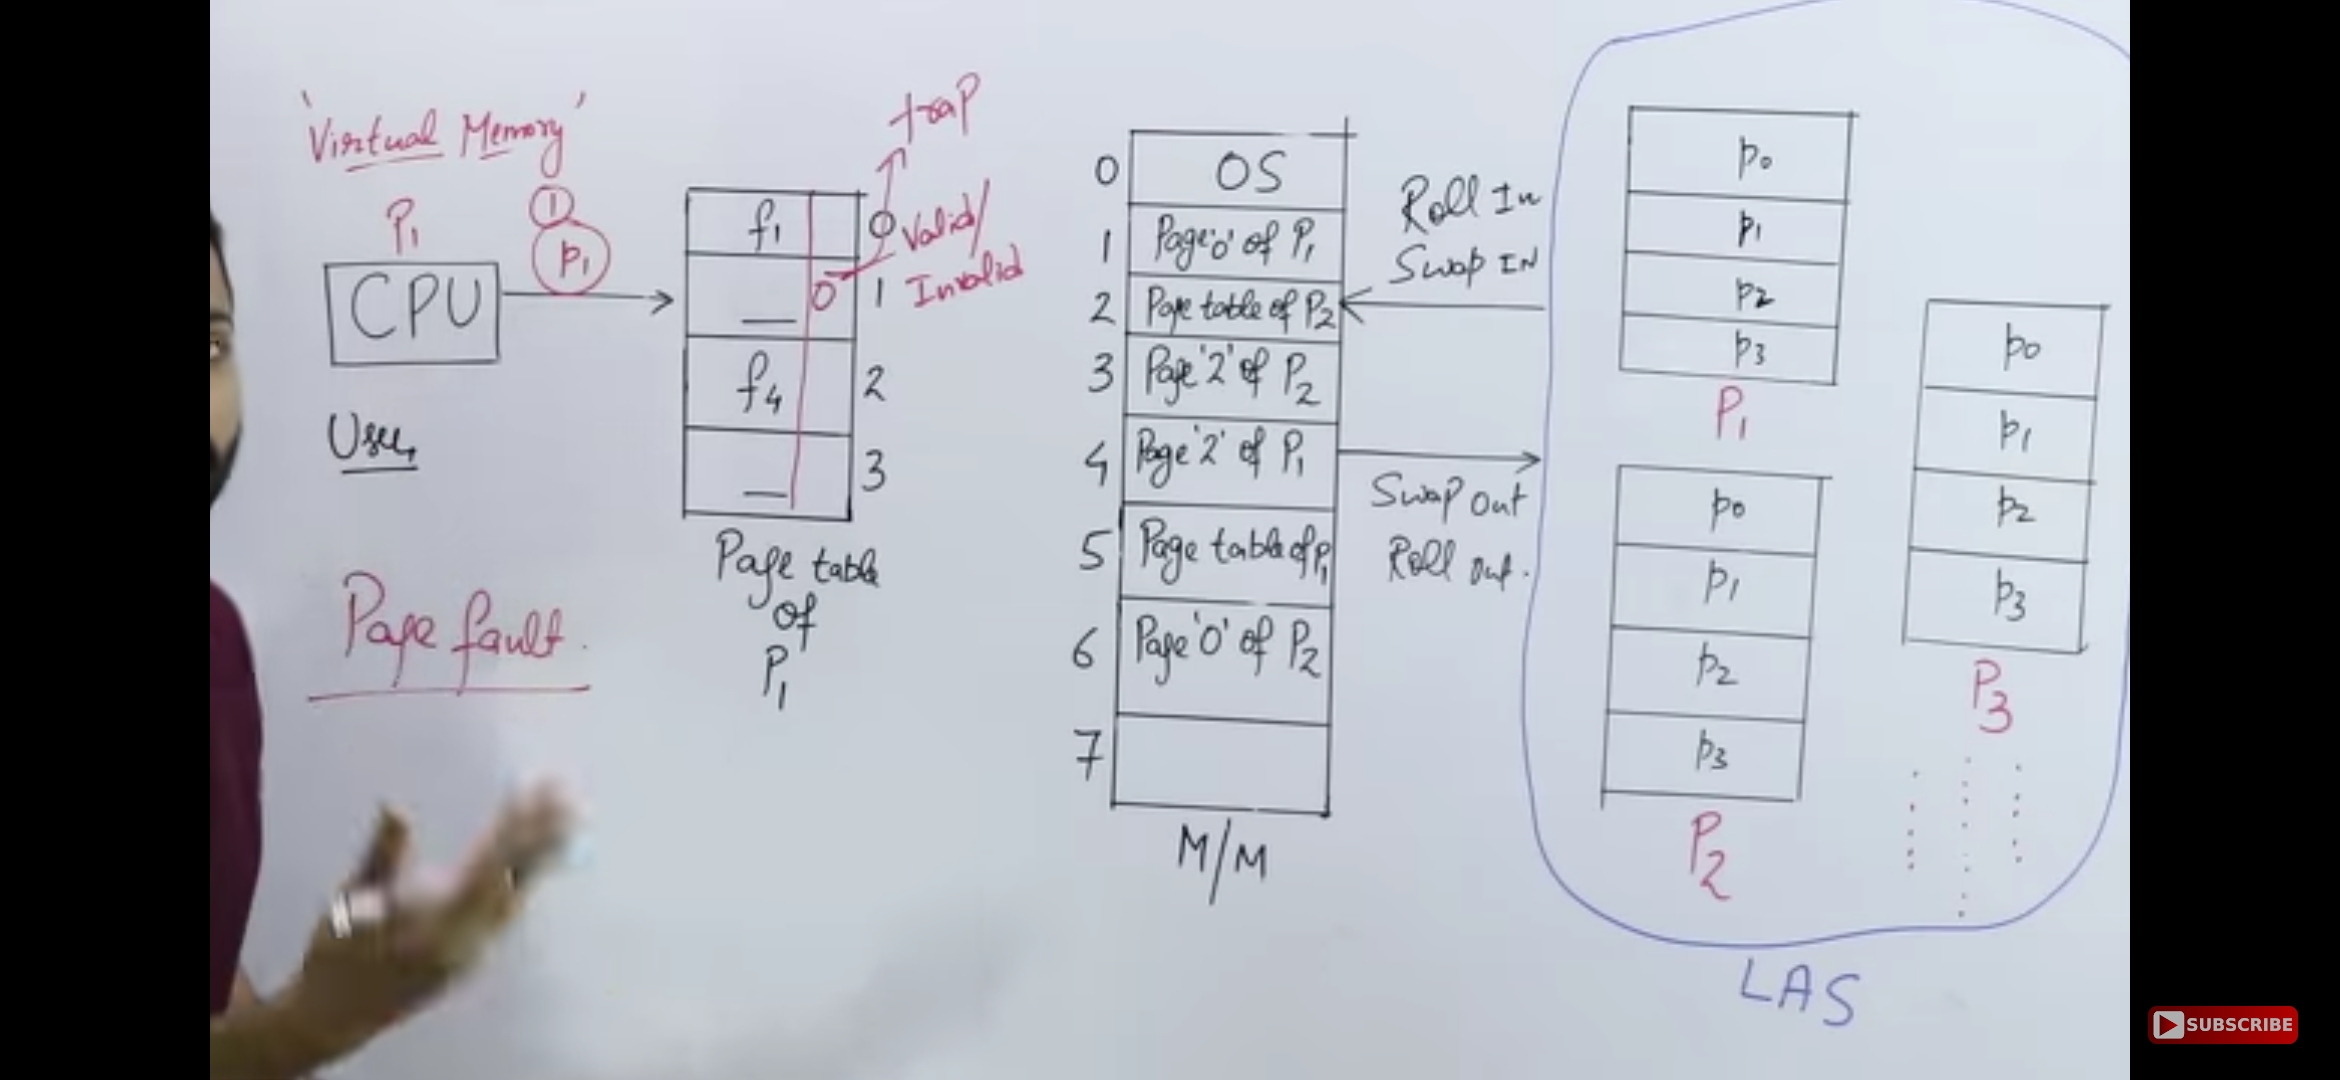 'Virtual Memory'
P1
1
p1
CPU
User
Page fault.
trap
Valid/
Invalid
f1
0
0
1
f4
2
3
Page table
of
P1
0 OS
1 Page '0' of P1
2 Page table of P2
3 Page '2' of P2
4 Page '2' of P1
5 Page table of P1
6 Page '0' of P2
7
M/M
Roll In
Swap IN
Swap Out
Roll Out.
p0
p1
p2
p3
P1
p0
p1
p2
p3
P2
p0
p1
p2
p3
P3
LAS
SUBSCRIBE